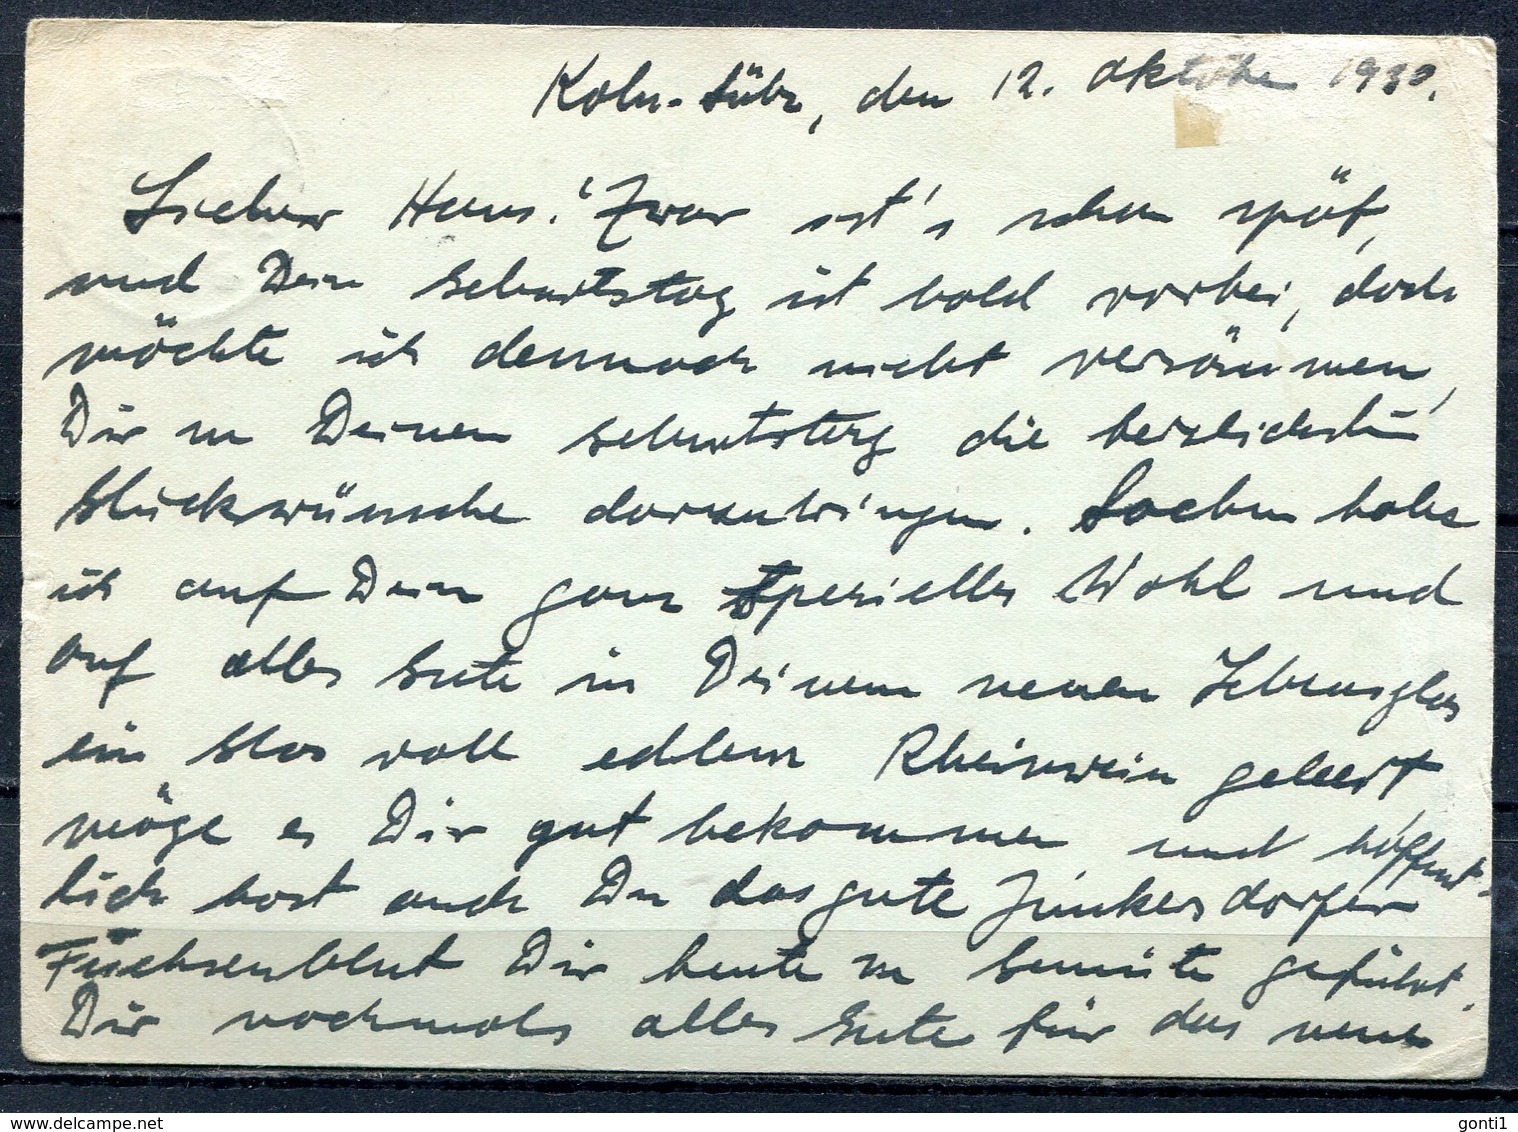 Köln-Sülz, den 12. Oktober 1930.
Lieber Hans! Zwar ist's schon spät,
und Dein Geburtstag ist bald vorbei, doch
möchte ich dennoch nicht versäumen,
Dir zu Deinem Geburtstag die herzlichsten
Glückwünsche darzubringen. Soeben habe
ich auf Dein ganz spezielles Wohl und
auf alles Gute in Deinem neuen Lebensjahr
ein Glas voll edlem Rheinwein geleert,
möge es Dir gut bekommen und hoffent-
lich hast auch Du das gute Junkersdorfer
Füchsenblut Dir heute zu Gemüte geführt.
Dir nochmals alles Gute für das neue
gonti1